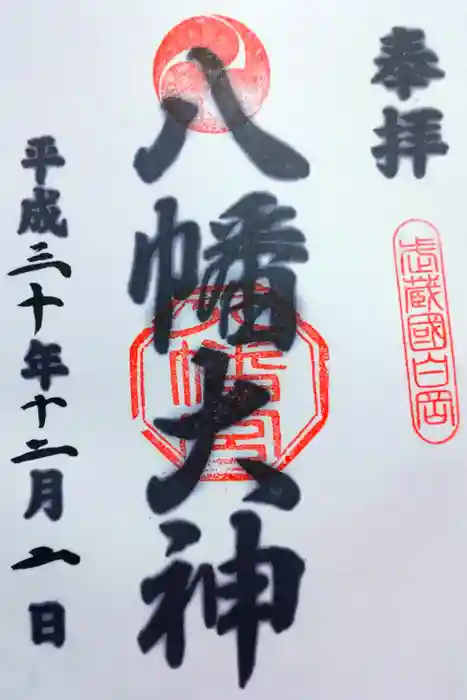 奉拝
武蔵國白岡
八幡大神
平成三十年十二月八日